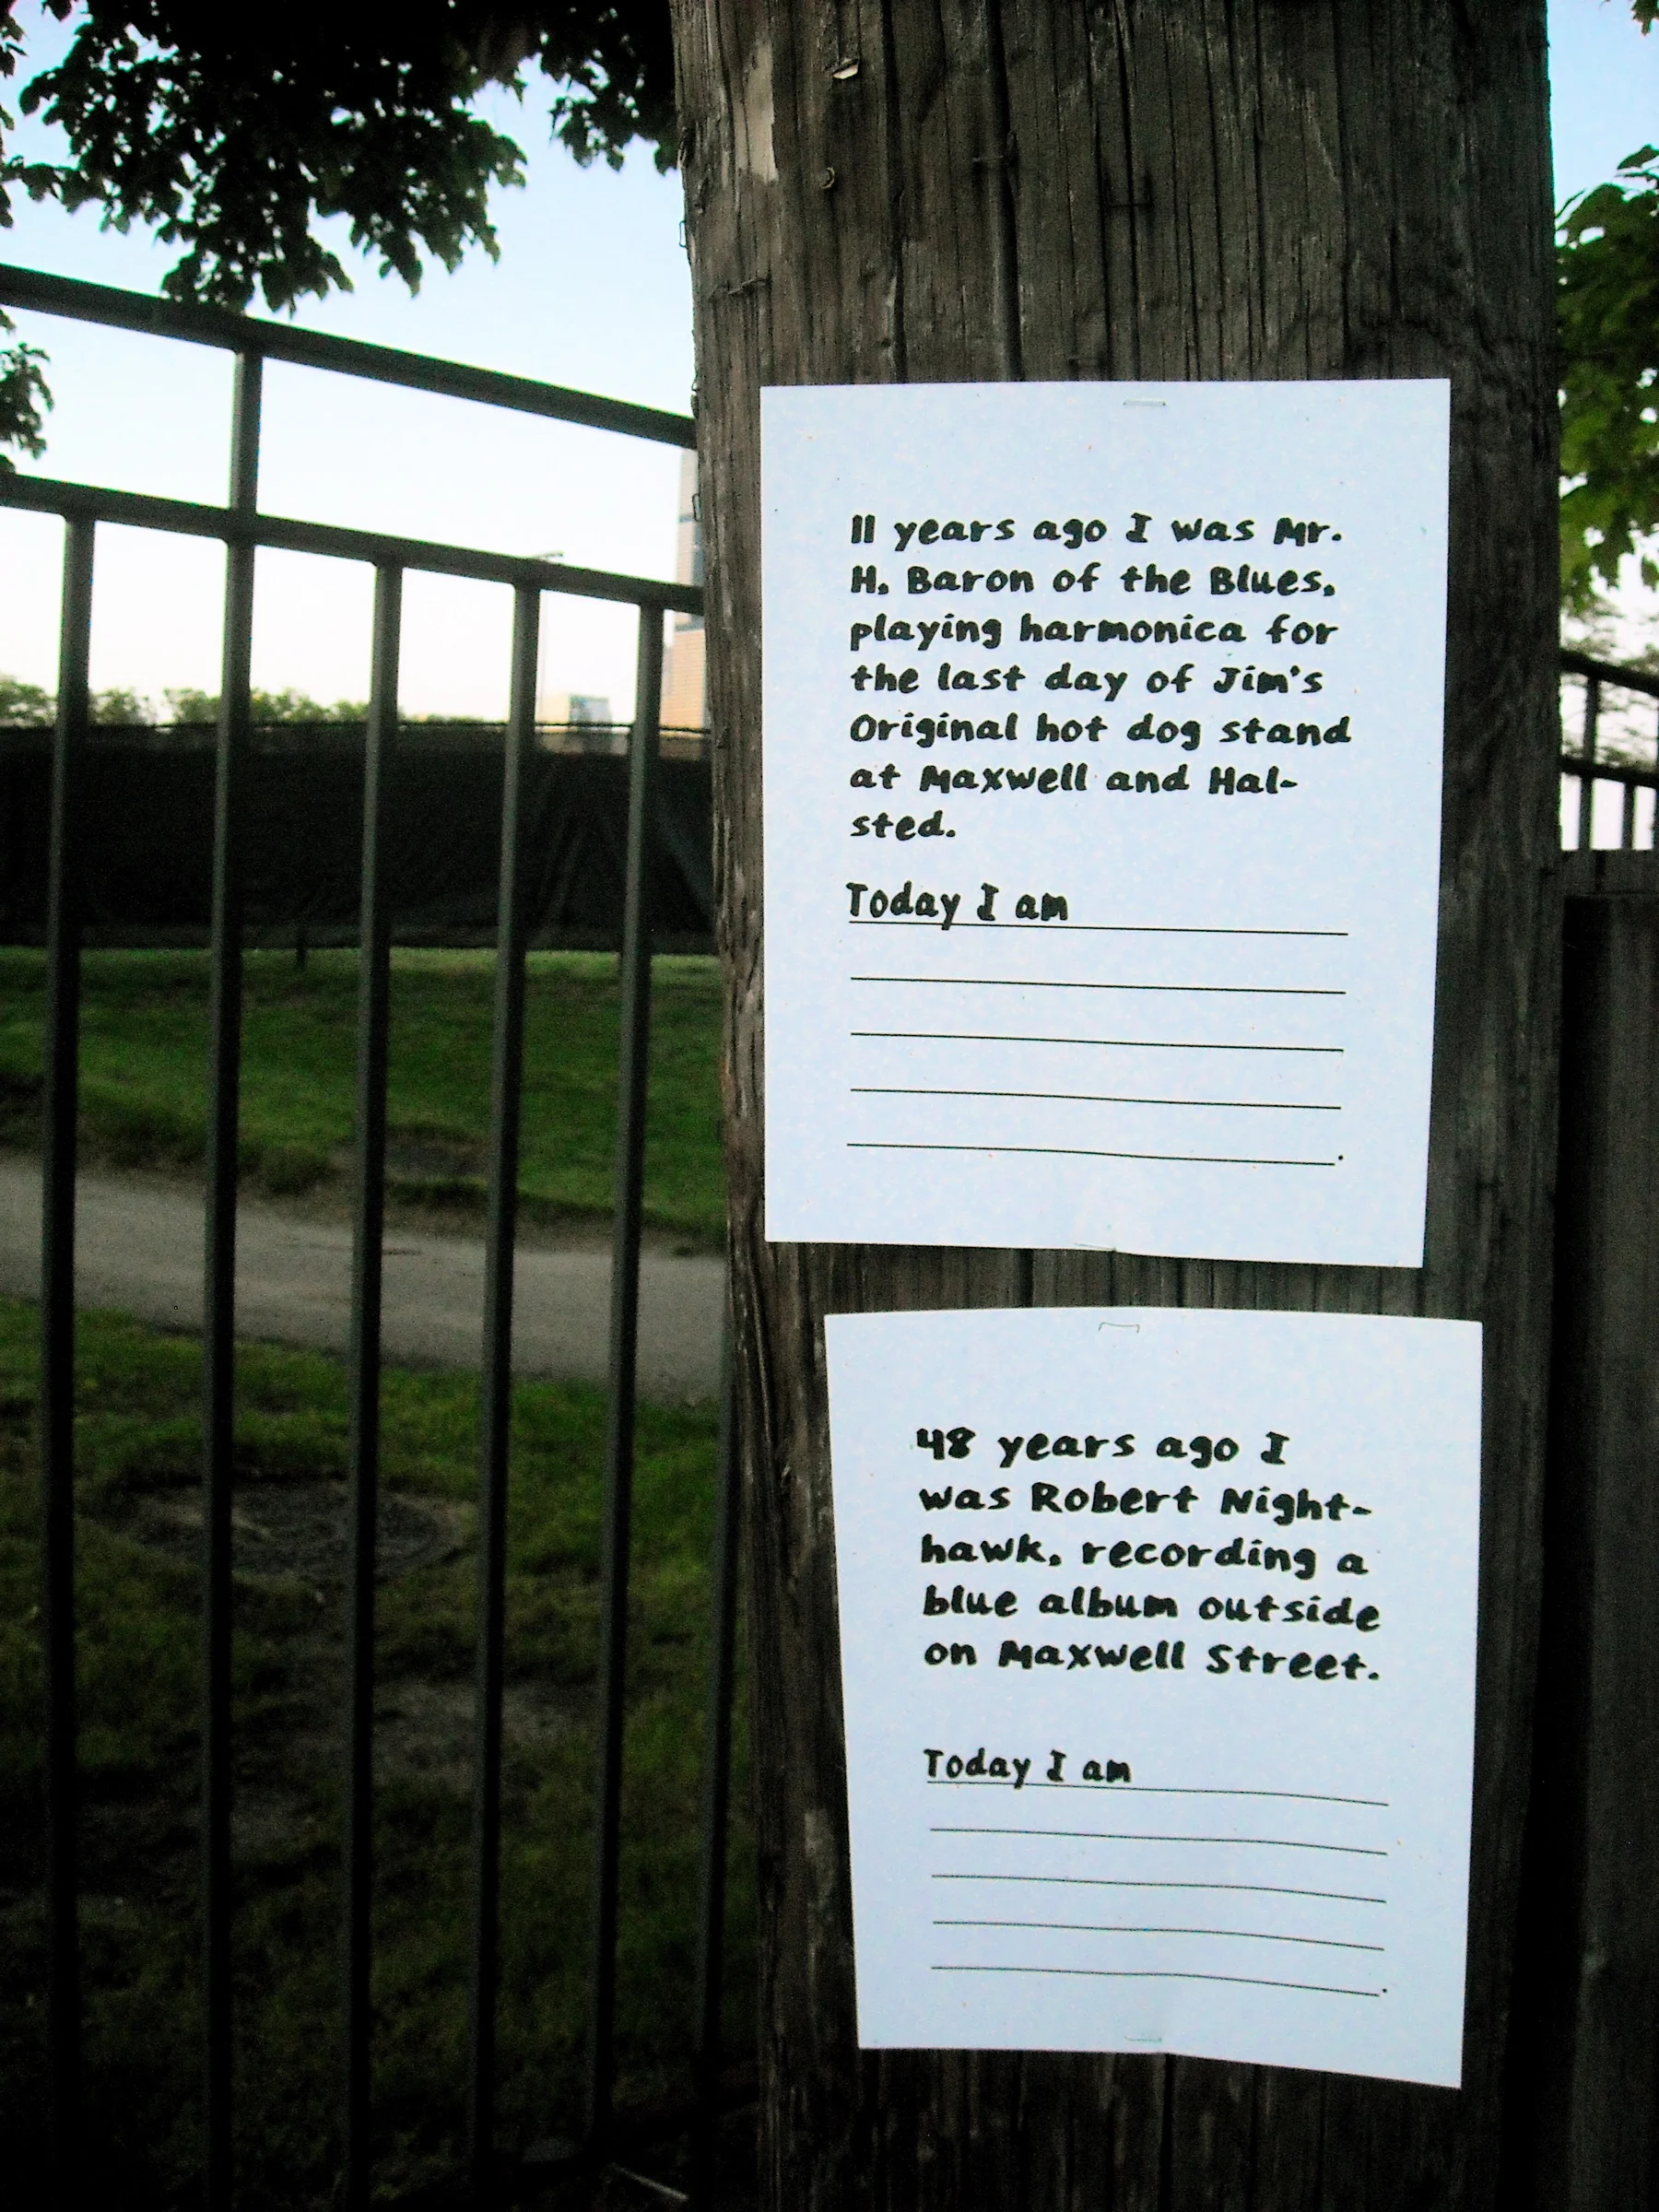 11 years ago I was Mr.
H, Baron of the Blues,
playing harmonica for
the last day of Jim's
Original hot dog stand
at Maxwell and Hal-
sted.
Today I am
.
48 years ago I
was Robert Night-
hawk, recording a
blue album outside
on Maxwell Street.
Today I am
.